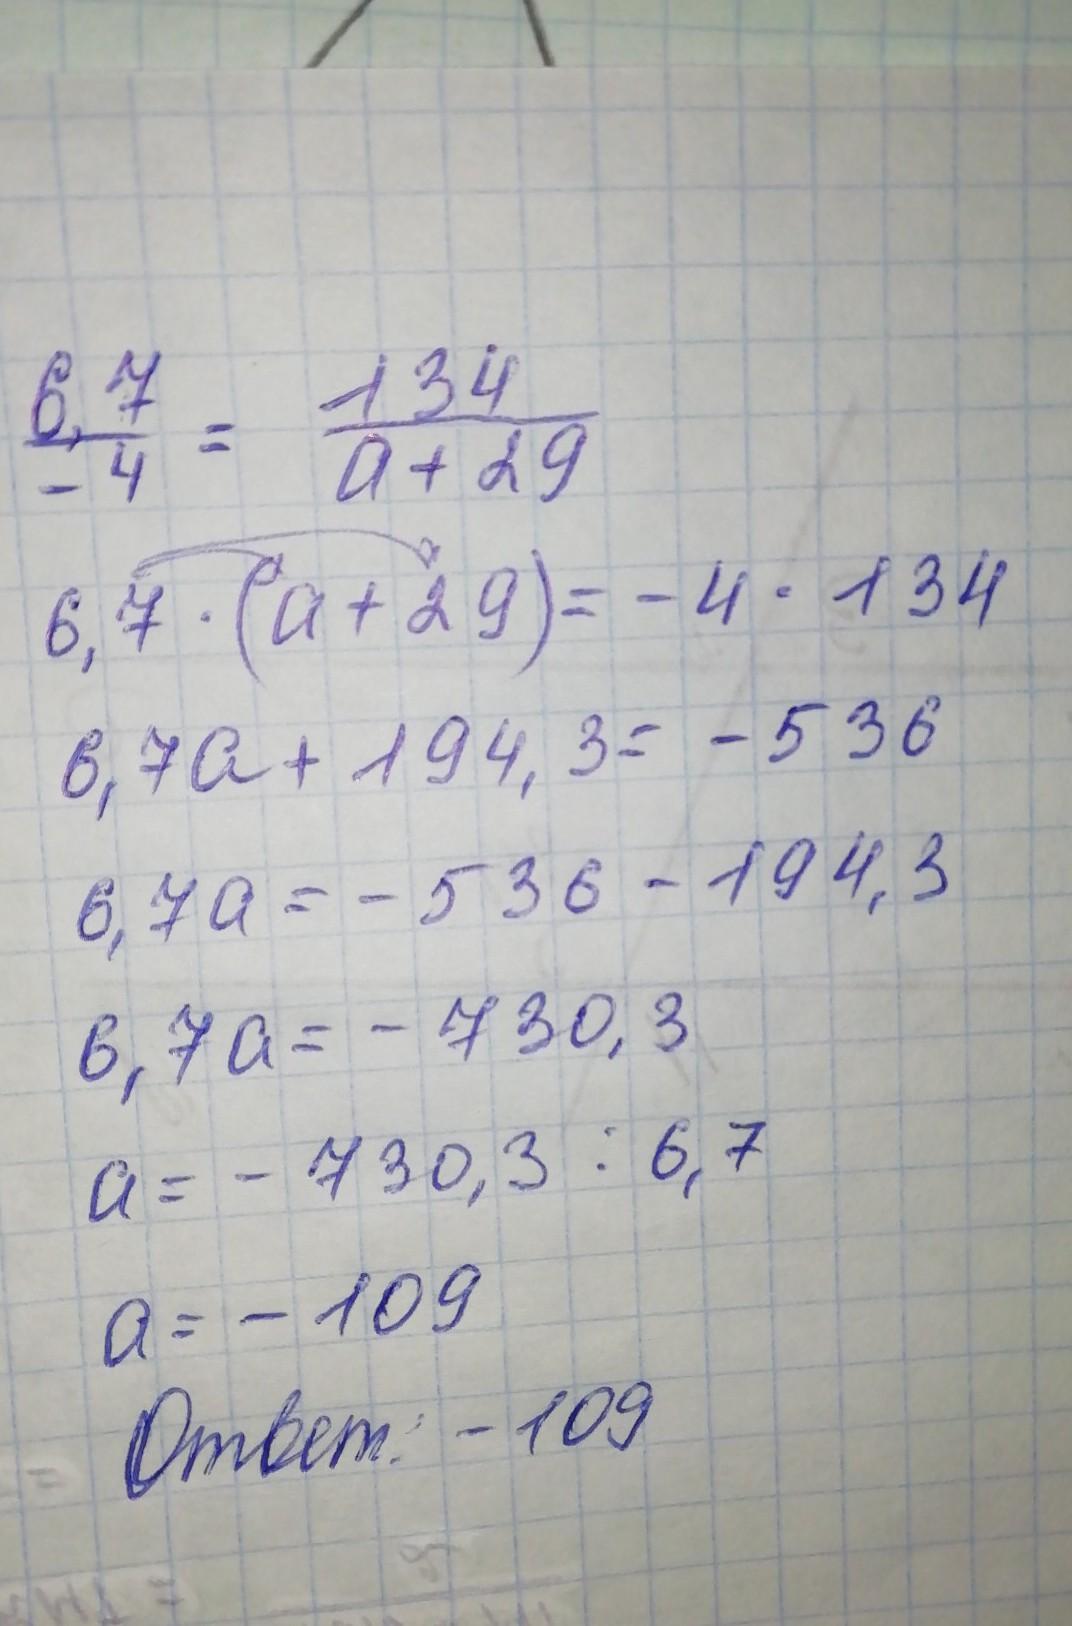 6,7/-4 = 134/a+29
6,7·(a+29)=-4·134
6,7a+194,3=-536
6,7a=-536-194,3
6,7a=-730,3
a=-730,3:6,7
a=-109
Ответ: -109